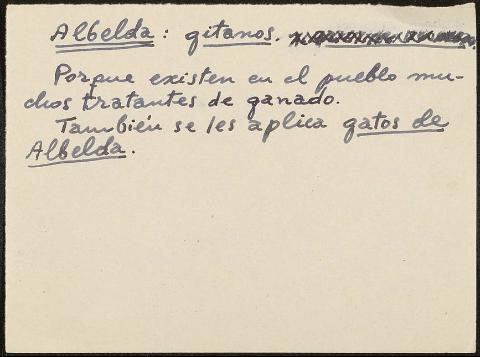 Albelda: gitanos.
Porque existen en el pueblo mu-
chos tratantes de ganado.
También se les aplica gatos de
Albelda.